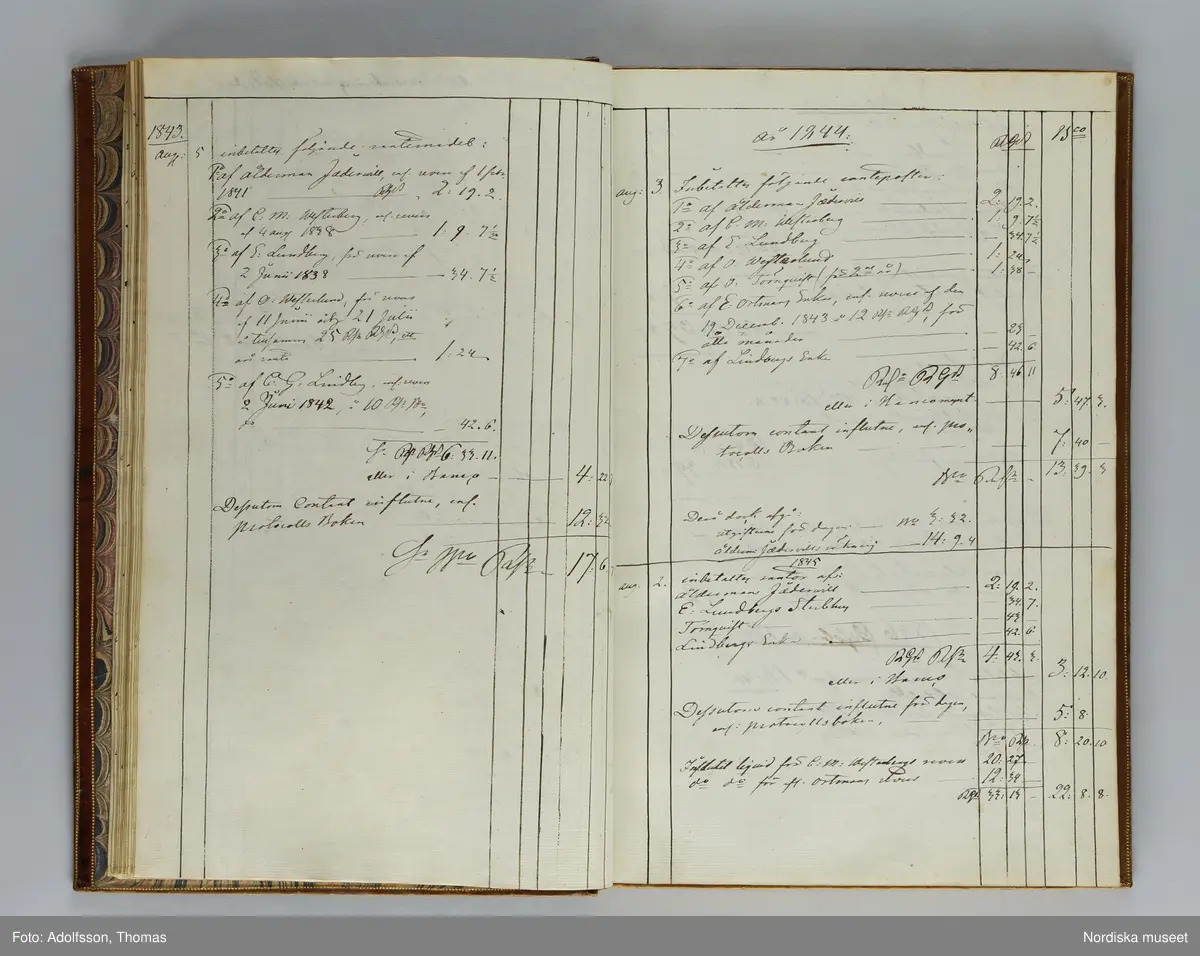 1843.
Aug: 5 inbetaltes följande räntemedel:
1o af Ålderman Jäderwill, enl. revers af 1 febr.
1841 RGS 2: 19. 2.
2o af C. M. Westerberg, enl. revers
af 4 aug 1838 1: 9. 7½
3o af E: Lundberg, för revers af
2 Junii 1838 — 34. 7½
4o af O: Westerlund, för revers
af 11 Junii och 21 Julii
25 RGS,
1: 24
5o af C. G: Lindberg, enl. revers
2 Juni 1842, à 10
— 42. 6.
Sa 6. 33. 11.
eller i Banco — 4: 22
Dessutom Contant influtne, enl.
Protocolls Boken 12: 32
Sa 17: 6
År 1844.
RGS
Bco
Aug: 3 Inbetaltes följande ränteposter:
1o af Ålderman Jäderwill 2: 19. 2.
2o af C. M. Westerberg 1: 9. 7½
3o af E: Lundberg — 34. 7½
4o af O. Westerlund 1: 24 –
5o af O: Törnquist (för 2ne år) 1: 38 –
6o af E: Ortmans Enka, enl. revers af den
19 Decemb. 1843 à 12 RGS, för
åtta månader — 23 –
7o af Lindbergs Enka — 42. 6
RGS 8. 46 11
eller i Bancomynt 5: 47. 3.
Dessutom contant influtne, enl. pro-
tocolls Boken 7: 40 –
Bco 13: 39. 3
Derå dock afgå:
utgifterne för dagen 3: 32.
Åldermn Jäderwills räkning 14: 9. 4
1845
Aug. 2. inbetaltes räntor af:
Ålderman Jäderwill 2: 19. 2.
E: Lundbergs Sterbhus — 34. 7.
Törnquist — 43 –
Lindbergs Enka — 42. 6
RGS 4: 43. 3.
eller i Banco 3: 12. 10.
Dessutom contant influtne för dagen,
enl: protocollsboken, 5: 8
Bco 8: 20. 10
Influtet liquid för C: M: Westerbergs revers 20: 27
do do för Ortmans do 12: 34
RGS 33: 13 – 22: 8. 8.
Foto: Adolfsson, Thomas
Nordiska museet